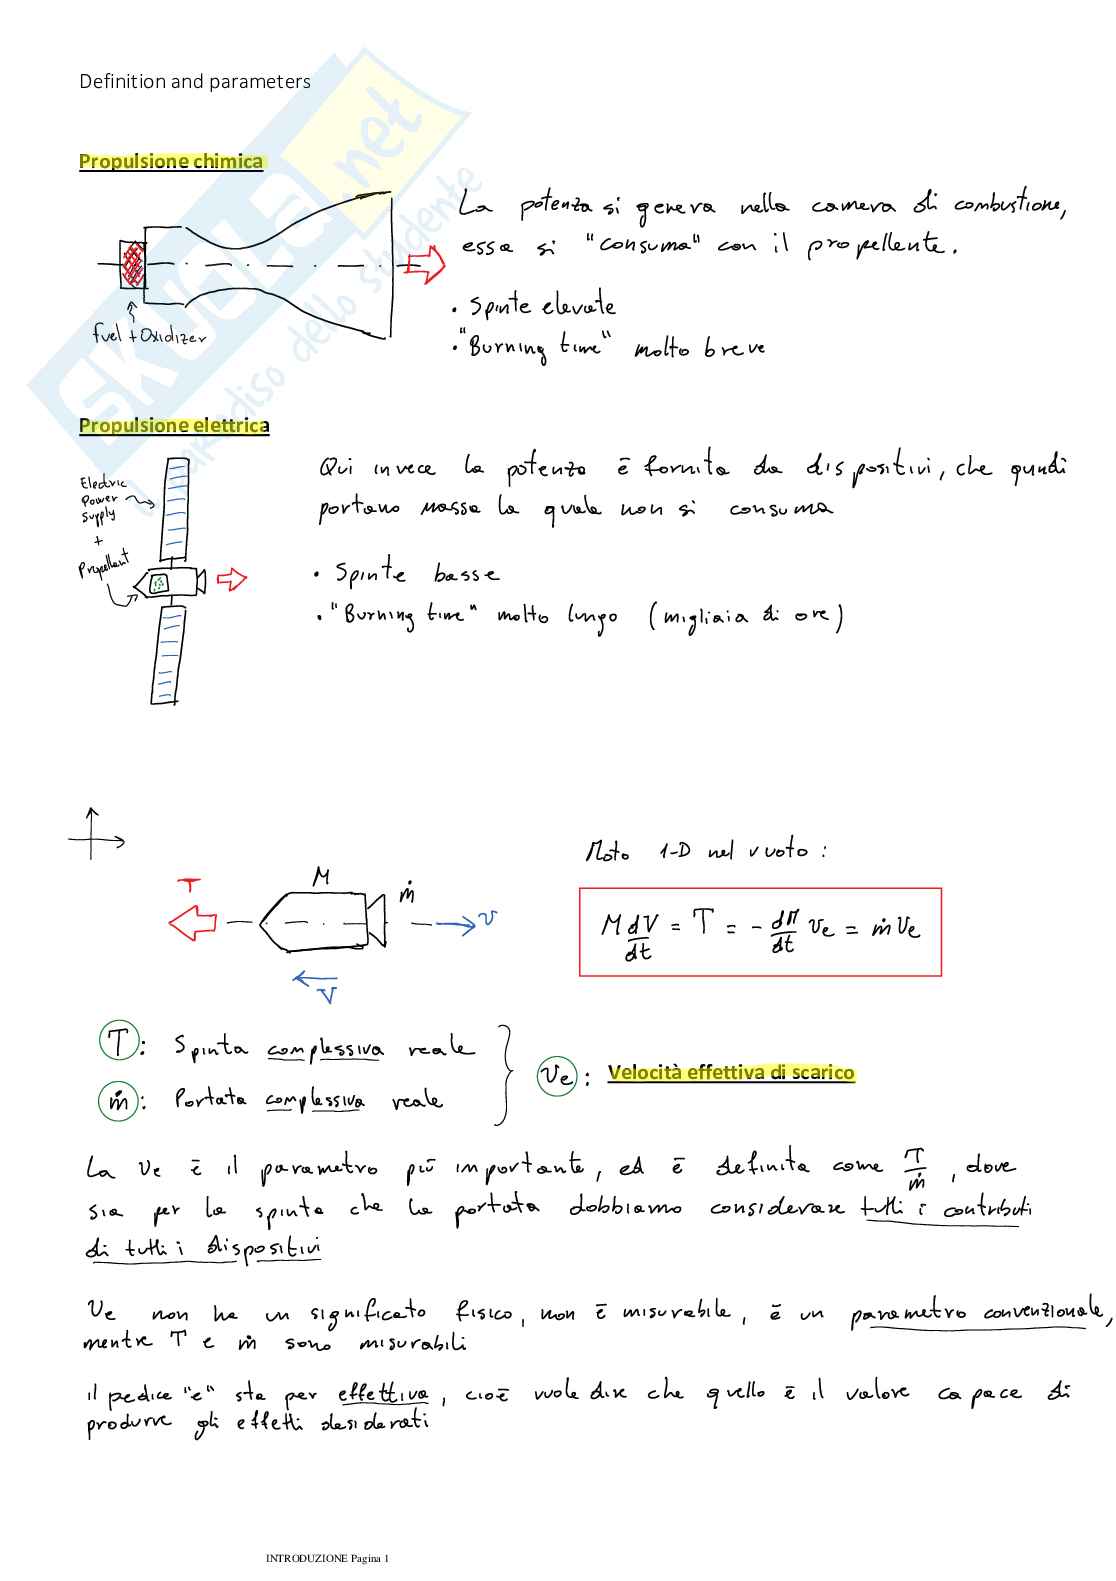 Definition and parameters
Propulsione chimica
La potenza si genera nella camera di combustione,
essa si "consuma" con il propellente.
• Spinte elevate
• "Burning time" molto breve
fuel + Oxidizer
Propulsione elettrica
Electric
Power
Supply
+
Propellant
Qui invece la potenza è fornita da dispositivi, che quindi
portano massa la quale non si consuma
• Spinte basse
• "Burning time" molto lungo (migliaia di ore)
Moto 1-D nel vuoto :
T
M
ṁ
v
V
M dV/dt = T = - dM/dt ve = ṁ ve
T : Spinta complessiva reale
ṁ : Portata complessiva reale
ve : Velocità effettiva di scarico
La ve è il parametro più importante, ed è definita come T/ṁ , dove
sia per la spinta che la portata dobbiamo considerare tutti i contributi
di tutti i dispositivi
Ve non ha un significato fisico, non è misurabile, è un parametro convenzionale,
mentre T e ṁ sono misurabili
il pedice "e" sta per effettiva, cioè vuole dire che quello è il valore capace di
produrre gli effetti desiderati
INTRODUZIONE Pagina 1
SKUOLA.net
paradiso dello studente